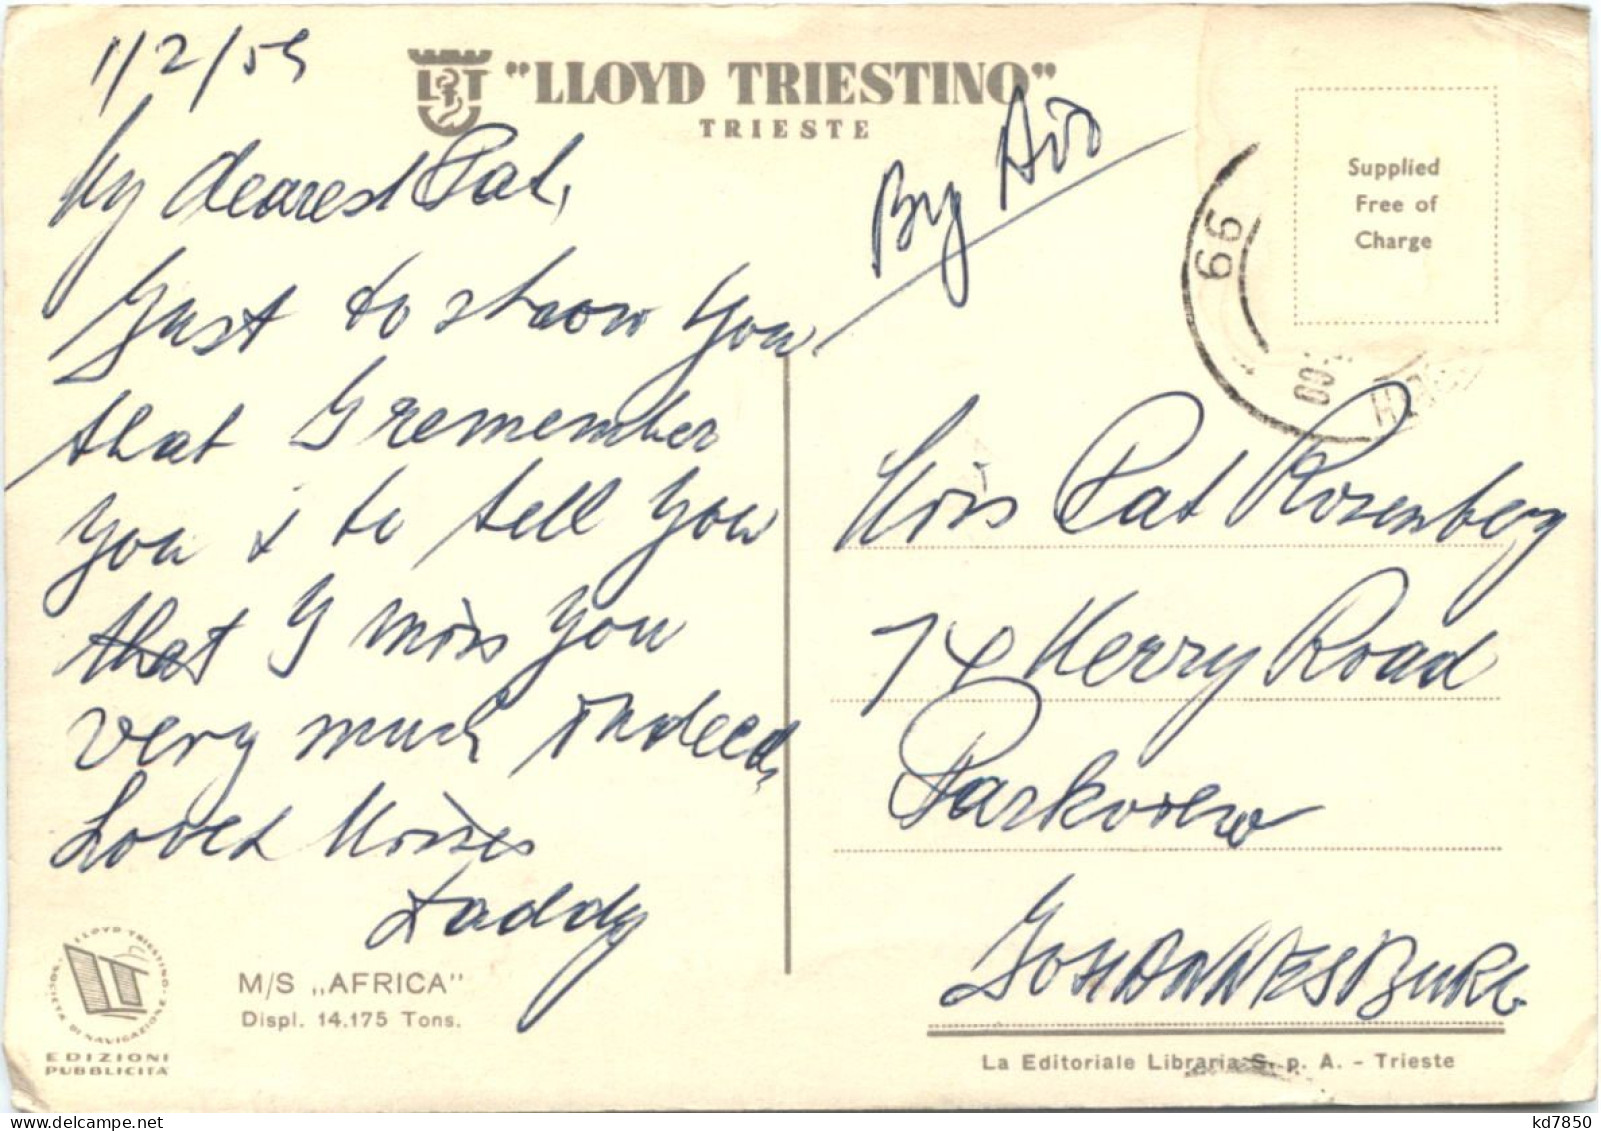 1/2/55
"LLOYD TRIESTINO"
TRIESTE
By Air
Supplied
Free of
Charge
66
My dearest Pat,
Just to show you
that I remember
you & to tell you
that I miss you
very much indeed,
Love & Kisses
Daddy
Miss Pat Rosenberg
74 Kerry Road
Parkview
JOHANNESBURG
LLOYD TRIESTINO
SOCIETÀ DI NAVIGAZIONE
EDIZIONI
PUBBLICITÀ
M/S „AFRICA"
Displ. 14.175 Tons.
La Editoriale Libraria S. p. A. - Trieste
kd7850